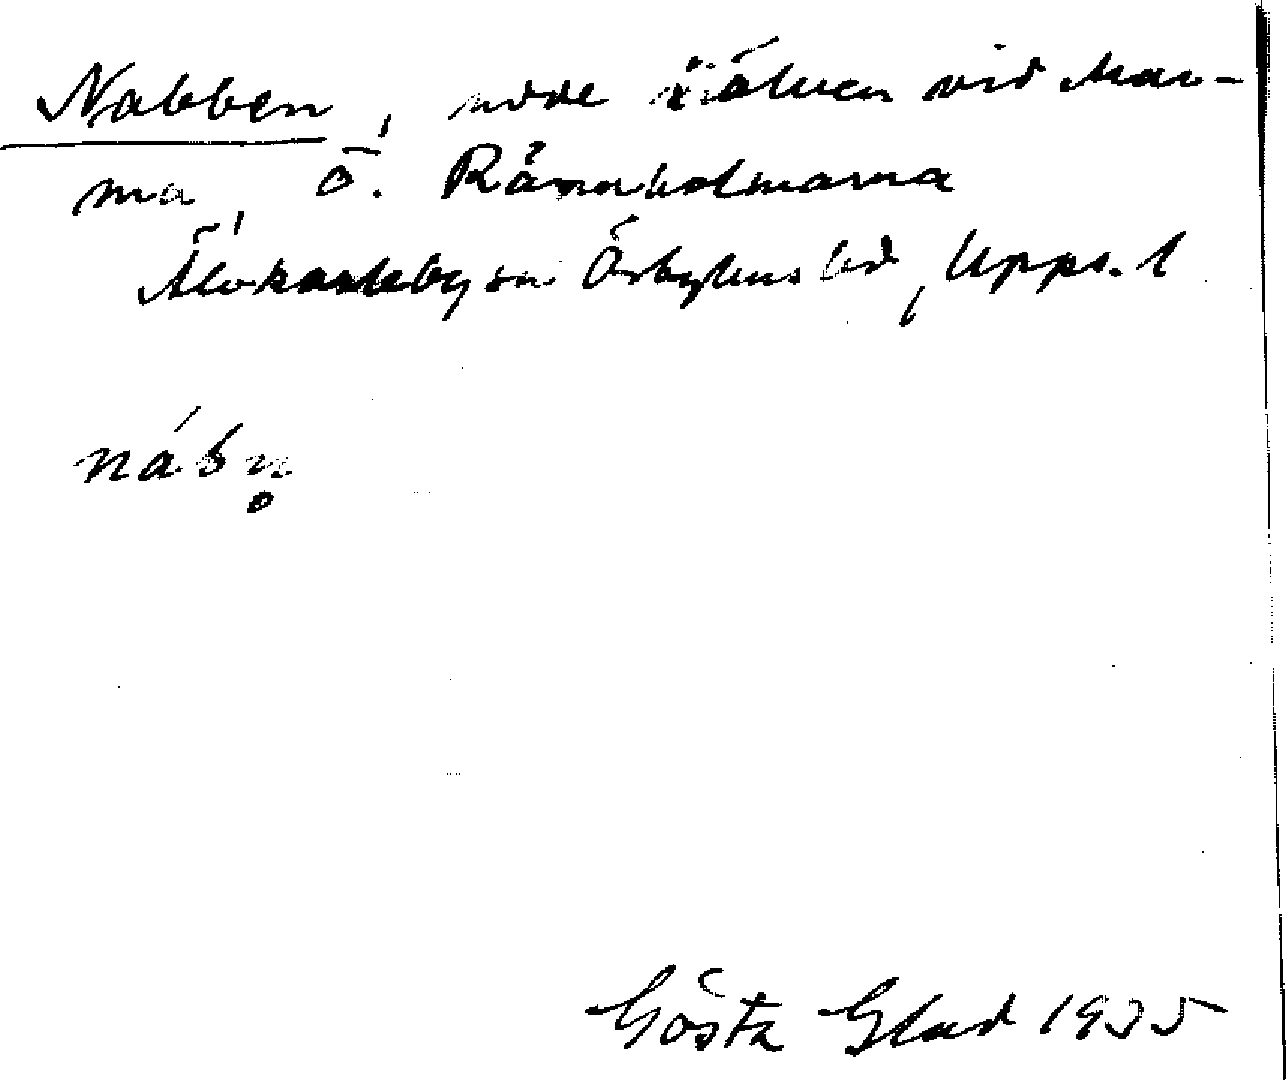 Nabben, udde i älven vid Mar-
ma, ö. Rännholmarna
Älvkarleby sn Örbyhus hd, Upps. l
nábn̥
Gösta Glad 1935